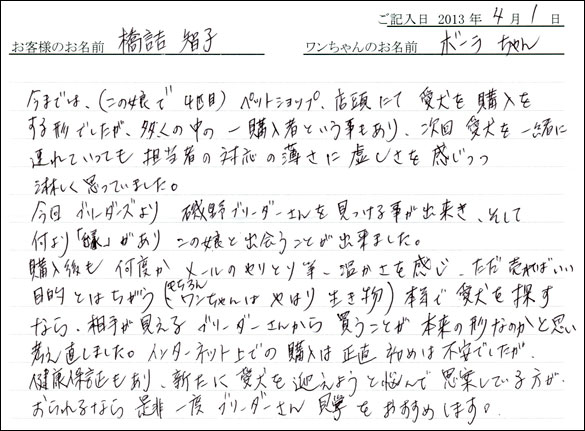 ご記入日 2013年 4月 1日
お客様のお名前 橋詰 智子 ワンちゃんのお名前 ボーラ ちゃん
今までは、(この娘で4匹目) ペットショップ、店頭にて 愛犬を 購入を
する形でしたが、多くの中の 一購入者という事もあり、次回 愛犬を 一緒に
連れていっても 担当者の 対応の 薄さに 虚しさを 感じつつ
淋しく思っていました。
今回 ブリーダーズより 磯野ブリーダーさんを 見つける事が出来き、そして
何より「縁」があり この娘と出会うことが出来ました。
購入後も 何度か メールのやりとり等、温かさを感じ、ただ売ればいい
目的とはちがう (もちろん ワンちゃんは やはり 生き物) 本気で 愛犬を 探す
なら、相手が 見える ブリーダーさんから 買うことが 本来の形なのかと思い
考え直しました。インターネット上での 購入は 正直 初めは不安でしたが、
健康保証もあり、新たに 愛犬を 迎えようと悩んで 思案している方が、
おられるなら 是非 一度 ブリーダーさん 見学 を おすすめします。